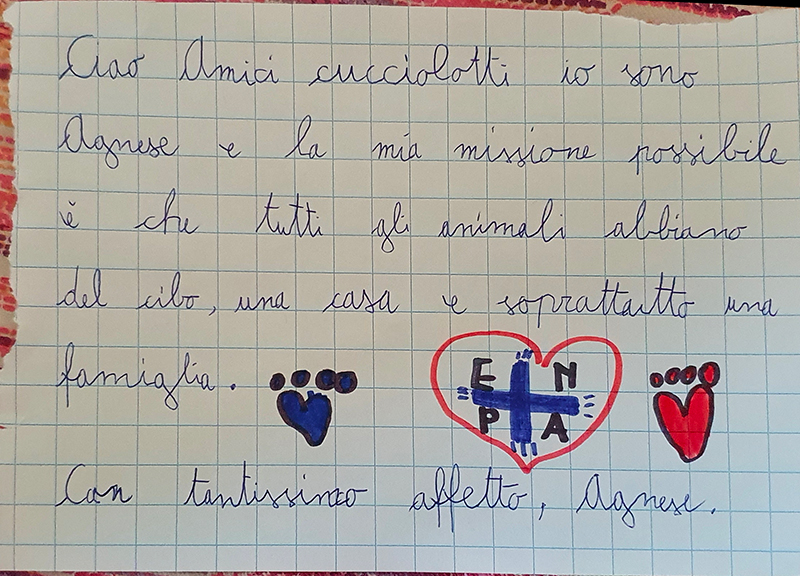 Ciao Amici cucciolotti io sono
Agnese e la mia missione possibile
è che tutti gli animali abbiano
del cibo, una casa e soprattutto una
famiglia.
E N
P A
Con tantissimo affetto, Agnese.